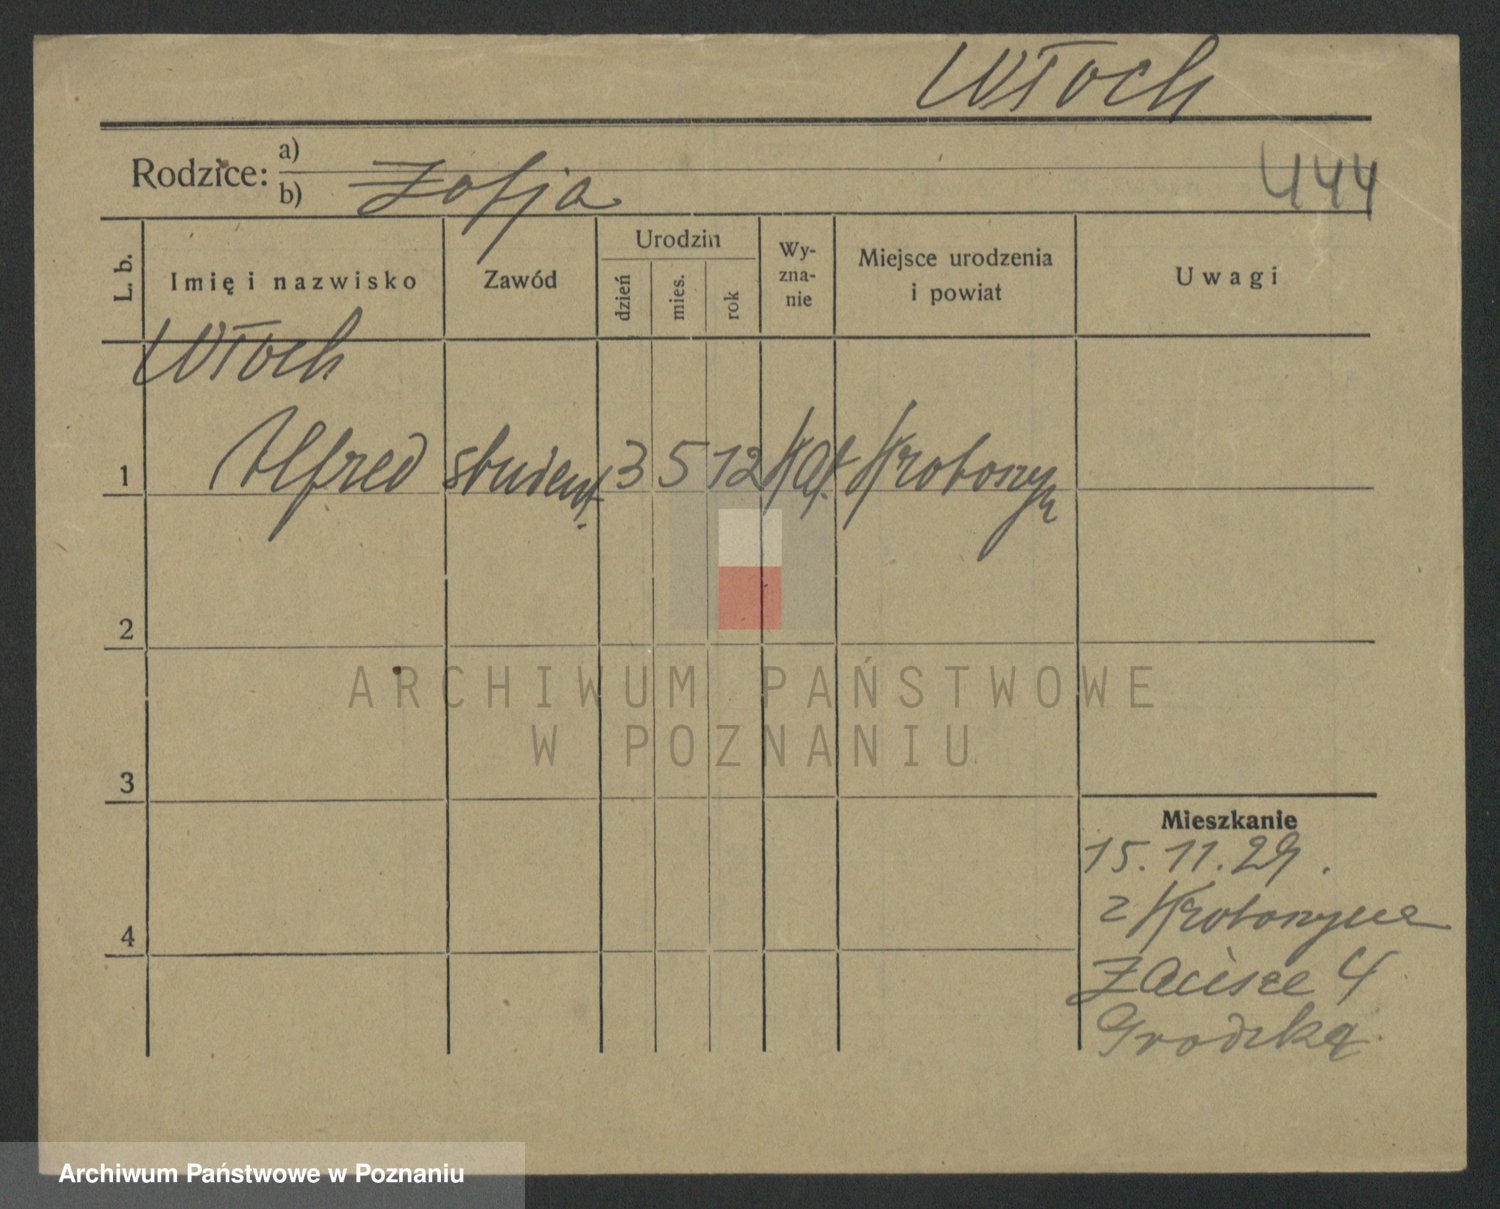 Włoch
Rodzice: a)
b) Zofja
444
L. b.
Imię i nazwisko
Zawód
Urodzin
dzień
mies.
rok
Wy-
zna-
nie
Miejsce urodzenia
i powiat
Uwagi
Włoch
1 Alfred student. 3 5 12 Kat. Krotoszyn
2
3
4
Mieszkanie
15.11.29.
z Krotoszyna
Zacisze 4
Grodzka
ARCHIWUM PAŃSTWOWE
W POZNANIU
Archiwum Państwowe w Poznaniu